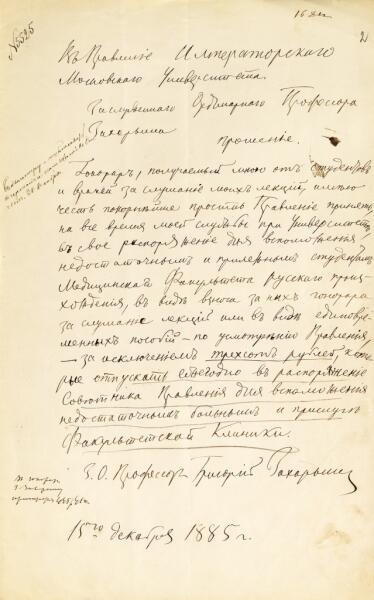 16 Дек
2
№5525
Въ Правленіе Императорскаго
Московскаго Университета.
Заслуженнаго Ординарнаго Профессора
Захарьина
прошеніе.
Гонораръ, получаемый мною отъ студентовъ
и врачей за слушаніе моихъ лекцій, имѣю
честь покорнѣйше просить Правленіе принять,
на все время моей службы при Университетѣ,
въ свое распоряженіе для вспоможенія
недостаточнымъ и прилежнымъ студентамъ
Медицинскаго Факультета русскаго проис-
хожденія, въ видѣ взноса за нихъ гонорара
за слушаніе лекцій или въ видѣ единовре-
менныхъ пособій – по усмотрѣнію Правленія,
– за исключеніемъ трехсотъ рублей, кото-
рые отпускать ежегодно въ распоряженіе
Совѣтника Правленія для вспоможенія
недостаточнымъ больнымъ и прислугѣ
Факультетской Клиники.
З. О. Профессоръ Григорій Захарьинъ
15го декабря 1885 г.